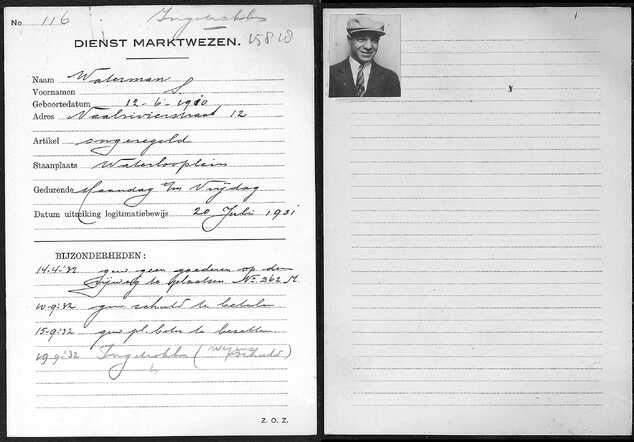 No 116 Ingetrokken
DIENST MARKTWEZEN. 15818
Naam Waterman
Voornamen S.
Geboortedatum 12-6-1910
Adres Vaalrivierstraat 12
Artikel ongeregeld
Staanplaats Waterlooplein
Gedurende Maandag t/m Vrijdag
Datum uitreiking legitimatiebewijs 20 Juli 1931
BIJZONDERHEDEN:
14-4-'32 gew. geen goederen op den
rijweg te plaatsen No. 262 M.
10-9-'32 gew. schuld te betalen
15-9-'32 gew. pl. beter te bezetten
19-9-'32 Ingetrokken (wegens schuld)
Z. O. Z.